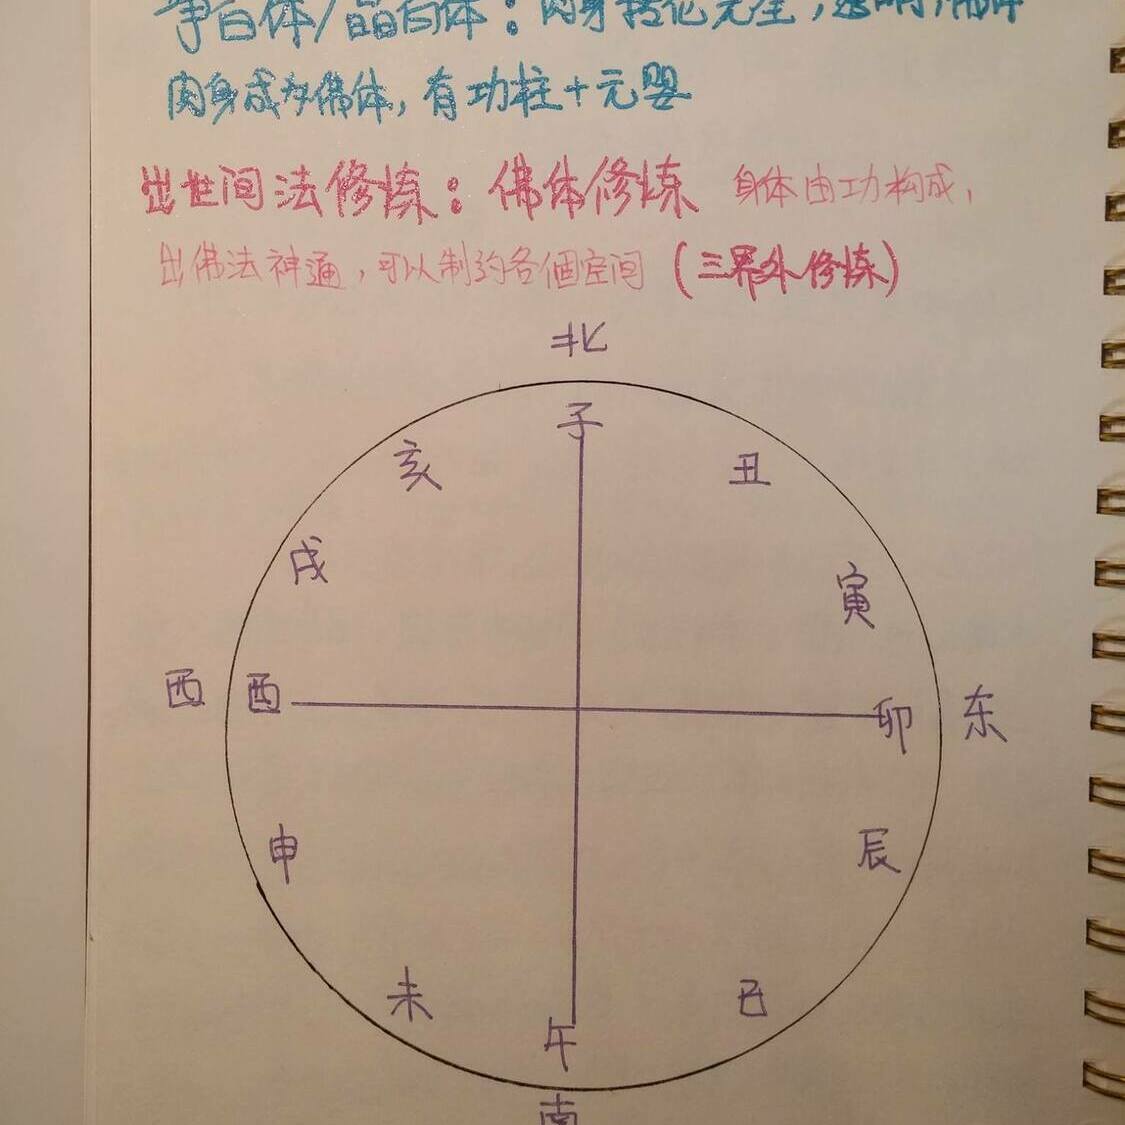 净白体/晶白体：肉身转化完全，透明，佛体
肉身成为佛体，有功柱+元婴
出世间法修炼：佛体修炼 身体由功构成，
出佛法神通，可以制约各個空间（三界外修炼）
北
子
亥 丑
戌 寅
西 酉 卯 东
申 辰
未 巳
午
南